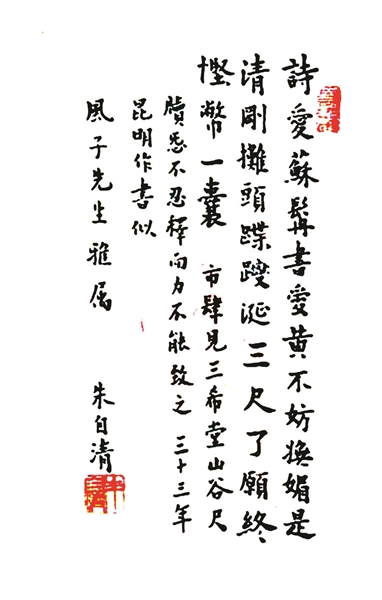 詩愛蘇髯書愛黃不妨娬媚是
清剛攤頭蹀躞涎三尺了願終
慳幣一囊 市肆見三希堂山谷尺
牘愛不忍釋而力不能致之 三十三年
昆明作書似
風子先生雅屬
朱自清